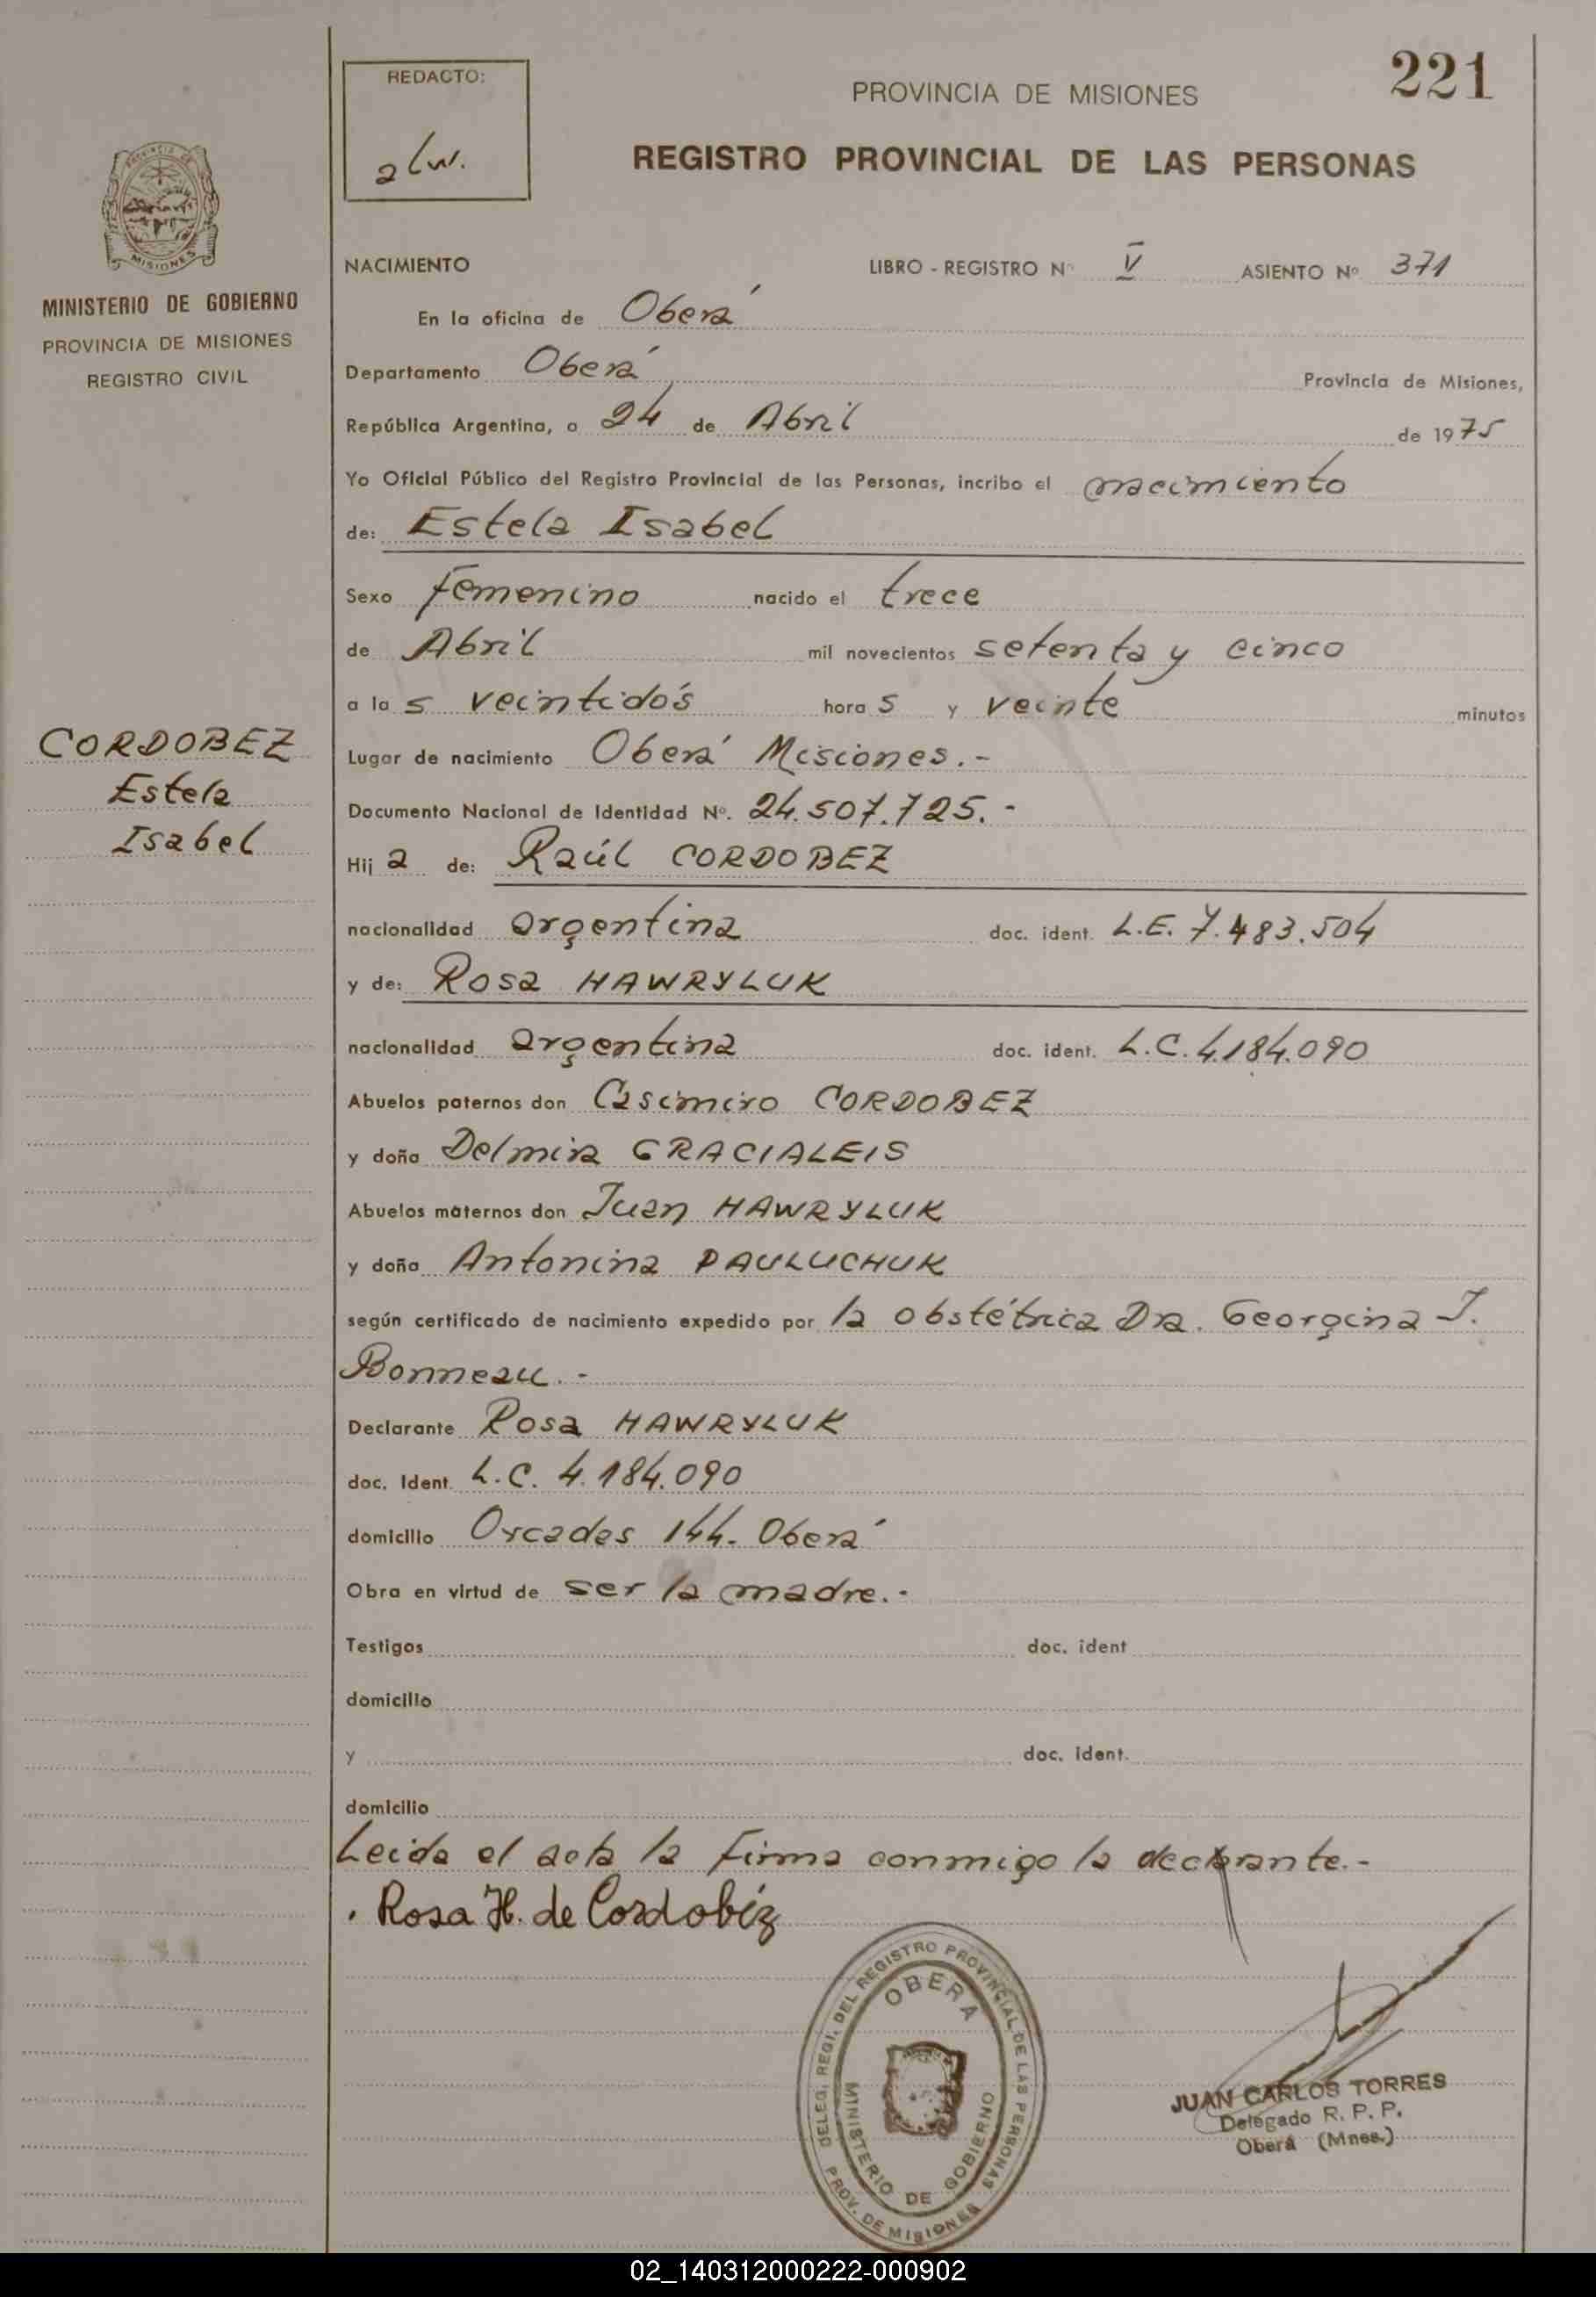 221
REDACTO:
PROVINCIA DE MISIONES
REGISTRO PROVINCIAL DE LAS PERSONAS
PROVINCIA DE
MISIONES
MINISTERIO DE GOBIERNO
PROVINCIA DE MISIONES
REGISTRO CIVIL
NACIMIENTO LIBRO - REGISTRO Nº V ASIENTO Nº 371
En la oficina de Oberá
Departamento Oberá Provincia de Misiones,
República Argentina, a 24 de Abril de 1975
Yo Oficial Público del Registro Provincial de las Personas, incribo el nacimiento
de: Estela Isabel
Sexo Femenino nacido el trece
de Abril mil novecientos setenta y cinco
a la s veintidós hora s y veinte minutos
CORDOBEZ
Estela
Isabel
Lugar de nacimiento Oberá Misiones.-
Documento Nacional de Identidad Nº. 24.507.725.-
Hij a de: Raúl CORDOBEZ
nacionalidad argentina doc. ident. L.E. 7.483.504
y de: Rosa HAWRYLUK
nacionalidad argentina doc. ident. L.C. 4.184.090
Abuelos paternos don Casimiro CORDOBEZ
y doña Delmira GRACIALEIS
Abuelos maternos don Juan HAWRYLUK
y doña Antonina PAULUCHUK
según certificado de nacimiento expedido por la obstétrica Dra. Georgina J.
Bonneau.-
Declarante Rosa HAWRYLUK
doc. Ident. L.C. 4.184.090
domicilio Orcades 144. Oberá
Obra en virtud de ser la madre.-
Testigos doc. ident
domicilio
y doc. ident.
domicilio
Leida el acta la firma conmigo la declarante.-
Rosa H. de Cordobéz
DELEG. REGI. DEL REGISTRO PROVINCIAL DE LAS PERSONAS
OBERA
MINISTERIO DE GOBIERNO
PROV. DE MISIONES
JUAN CARLOS TORRES
Delegado R. P. P.
Oberá (Mnes.)
02_140312000222-000902